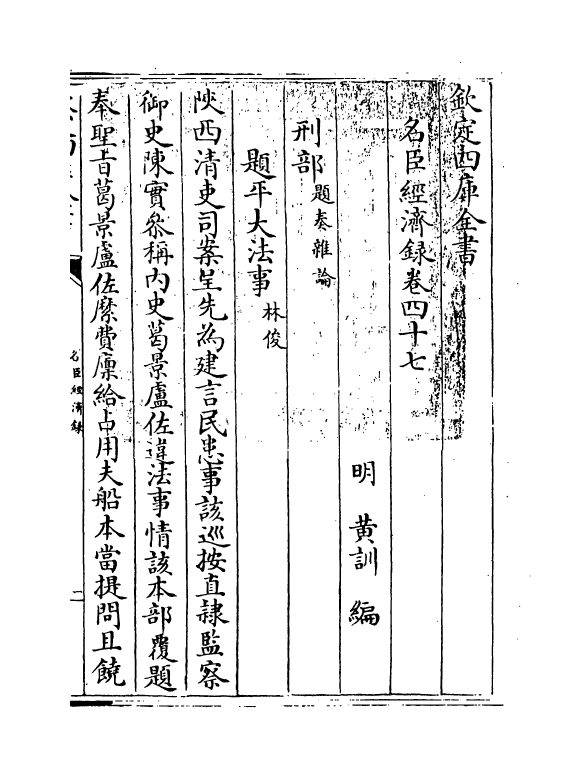 欽定四庫全書
名臣經濟錄卷四十七
明 黃訓 編
刑部 題奏雜論
題平大法事 林俊
陜西清吏司案呈先為建言民患事該巡按直隸監察
御史陳實叅稱內史葛景盧佐違法事情該本部覆題
奉聖旨葛景盧佐縻費廩給占用夫船本當提問且饒
名臣經濟錄
二